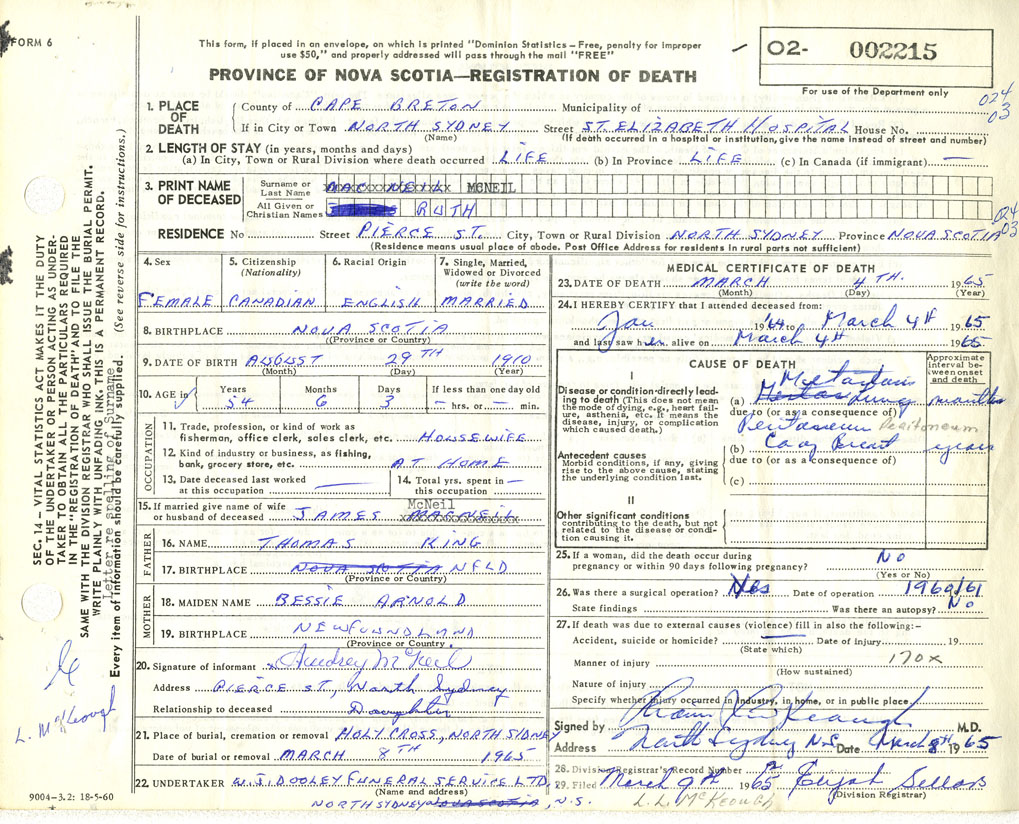 FORM 6
This form, if placed in an envelope, on which is printed "Dominion Statistics – Free, penalty for improper
use $50," and properly addressed will pass through the mail "FREE"
PROVINCE OF NOVA SCOTIA—REGISTRATION OF DEATH
O2- 002215
For use of the Department only
024
03
1. PLACE OF DEATH
County of CAPE BRETON Municipality of
If in City or Town NORTH SYDNEY Street ST. ELIZABETH HOSPITAL House No.
(Name) (If death occurred in a hospital or institution, give the name instead of street and number)
2. LENGTH OF STAY (in years, months and days)
(a) In City, Town or Rural Division where death occurred LIFE (b) In Province LIFE (c) In Canada (if immigrant) —
3. PRINT NAME OF DECEASED
Surname or Last Name MAC NEIL MCNEIL
All Given or Christian Names RUTH
024
03
RESIDENCE No Street PIERCE ST. City, Town or Rural Division NORTH SYDNEY Province NOVA SCOTIA
(Residence means usual place of abode. Post Office Address for residents in rural parts not sufficient)
4. Sex FEMALE
5. Citizenship (Nationality) CANADIAN
6. Racial Origin ENGLISH
7. Single, Married, Widowed or Divorced (write the word) MARRIED
8. BIRTHPLACE NOVA SCOTIA
((Province or Country)
9. DATE OF BIRTH AUGUST 29TH 1910
(Month) (Day) (Year)
10. AGE in Years 54 Months 6 Days 3 If less than one day old — hrs. or — min.
OCCUPATION
11. Trade, profession, or kind of work as fisherman, office clerk, sales clerk, etc. HOUSEWIFE
12. Kind of industry or business, as fishing, bank, grocery store, etc. AT HOME
13. Date deceased last worked at this occupation —
14. Total yrs. spent in this occupation —
15. If married give name of wife or husband of deceased JAMES MACNEIL McNeil
FATHER
16. NAME THOMAS KING
17. BIRTHPLACE NOVA SCOTIA NFLD
(Province or Country)
MOTHER
18. MAIDEN NAME BESSIE ARNOLD
19. BIRTHPLACE NEWFOUNDLAND
(Province or Country)
20. Signature of informant Audrey McNeil
Address PIERCE ST, North Sydney
Relationship to deceased Daughter
21. Place of burial, cremation or removal HOLY CROSS, NORTH SYDNEY
Date of burial or removal MARCH 8TH 1965
22. UNDERTAKER W.J. DOOLEY FUNERAL SERVICE LTD
(Name and address)
NORTH SYDNEY NOVA SCOTIA, N.S.
9004-3.2: 18-5-60
MEDICAL CERTIFICATE OF DEATH
23. DATE OF DEATH MARCH 4TH. 1965
(Month) (Day) (Year)
24. I HEREBY CERTIFY that I attended deceased from:
Jan '64 to March 4th 1965
and last saw her alive on March 4th 1965
CAUSE OF DEATH
Approximate interval between onset and death
I
Disease or condition directly leading to death (This does not mean the mode of dying, e.g., heart failure, asthenia, etc. It means the disease, injury, or complication which caused death.)
(a) Lung months
due to (or as a consequence of)
Peritoneum
(b) Ca of Breast years
due to (or as a consequence of)
(c)
Antecedent causes
Morbid conditions, if any, giving rise to the above cause, stating the underlying condition last.
II
Other significant conditions
contributing to the death, but not related to the disease or condition causing it.
25. If a woman, did the death occur during pregnancy or within 90 days following pregnancy? No
(Yes or No)
26. Was there a surgical operation? Yes Date of operation 1960/61
State findings Was there an autopsy? No
27. If death was due to external causes (violence) fill in also the following:-
Accident, suicide or homicide? — Date of injury 19
(State which)
Manner of injury 170x
(How sustained)
Nature of injury
Specify whether injury occurred in industry, in home, or in public place.
Signed by Keough M.D.
Address North Sydney N.S. Date March 8th 1965
28. Division Registrar's Record Number
29. Filed March 9th 1965 Elijah Sellars
(Division Registrar)
L. L. McKEOUGH
SEC. 14 – VITAL STATISTICS ACT MAKES IT THE DUTY
OF THE UNDERTAKER OR PERSON ACTING AS UNDER-
TAKER TO OBTAIN ALL THE PARTICULARS REQUIRED
IN THE "REGISTRATION OF DEATH" AND TO FILE THE
SAME WITH THE DIVISION REGISTRAR WHO SHALL ISSUE THE BURIAL PERMIT.
WRITE PLAINLY WITH UNFADING INK. THIS IS A PERMANENT RECORD.
Letter re spelling of Surname.
Every item of information should be carefully supplied. (See reverse side for instructions.)
L. McKeough